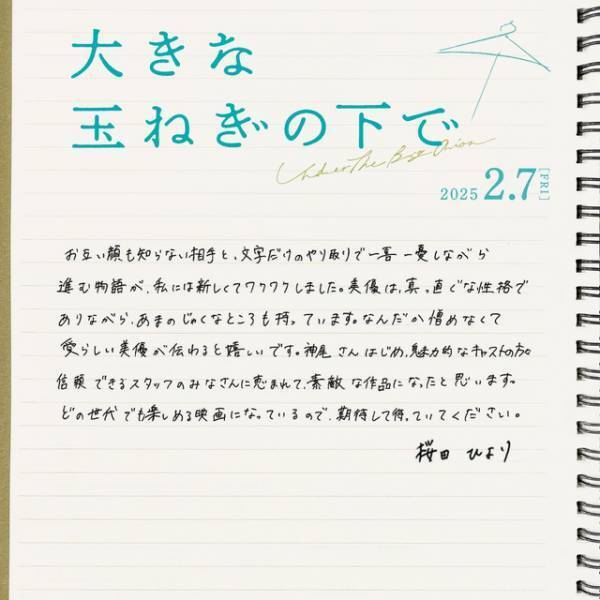 大きな
玉ねぎの下で
Under The Big Onion
2025 2.7 [FRI]
お互い顔も知らない相手と、文字だけのやり取りで一喜一憂しながら
進む物語が、私には新しくてワクワクしました。美優は、真っ直ぐな性格で
ありながら、あまのじゃくなところも持っています。なんだか憎めなくて
愛らしい美優が伝わると嬉しいです。神尾さんはじめ、魅力的なキャストの方々
信頼できるスタッフのみなさんに恵まれて、素敵な作品になったと思います。
どの世代でも楽しめる映画になっているので、期待して待っていてください。
桜田 ひより